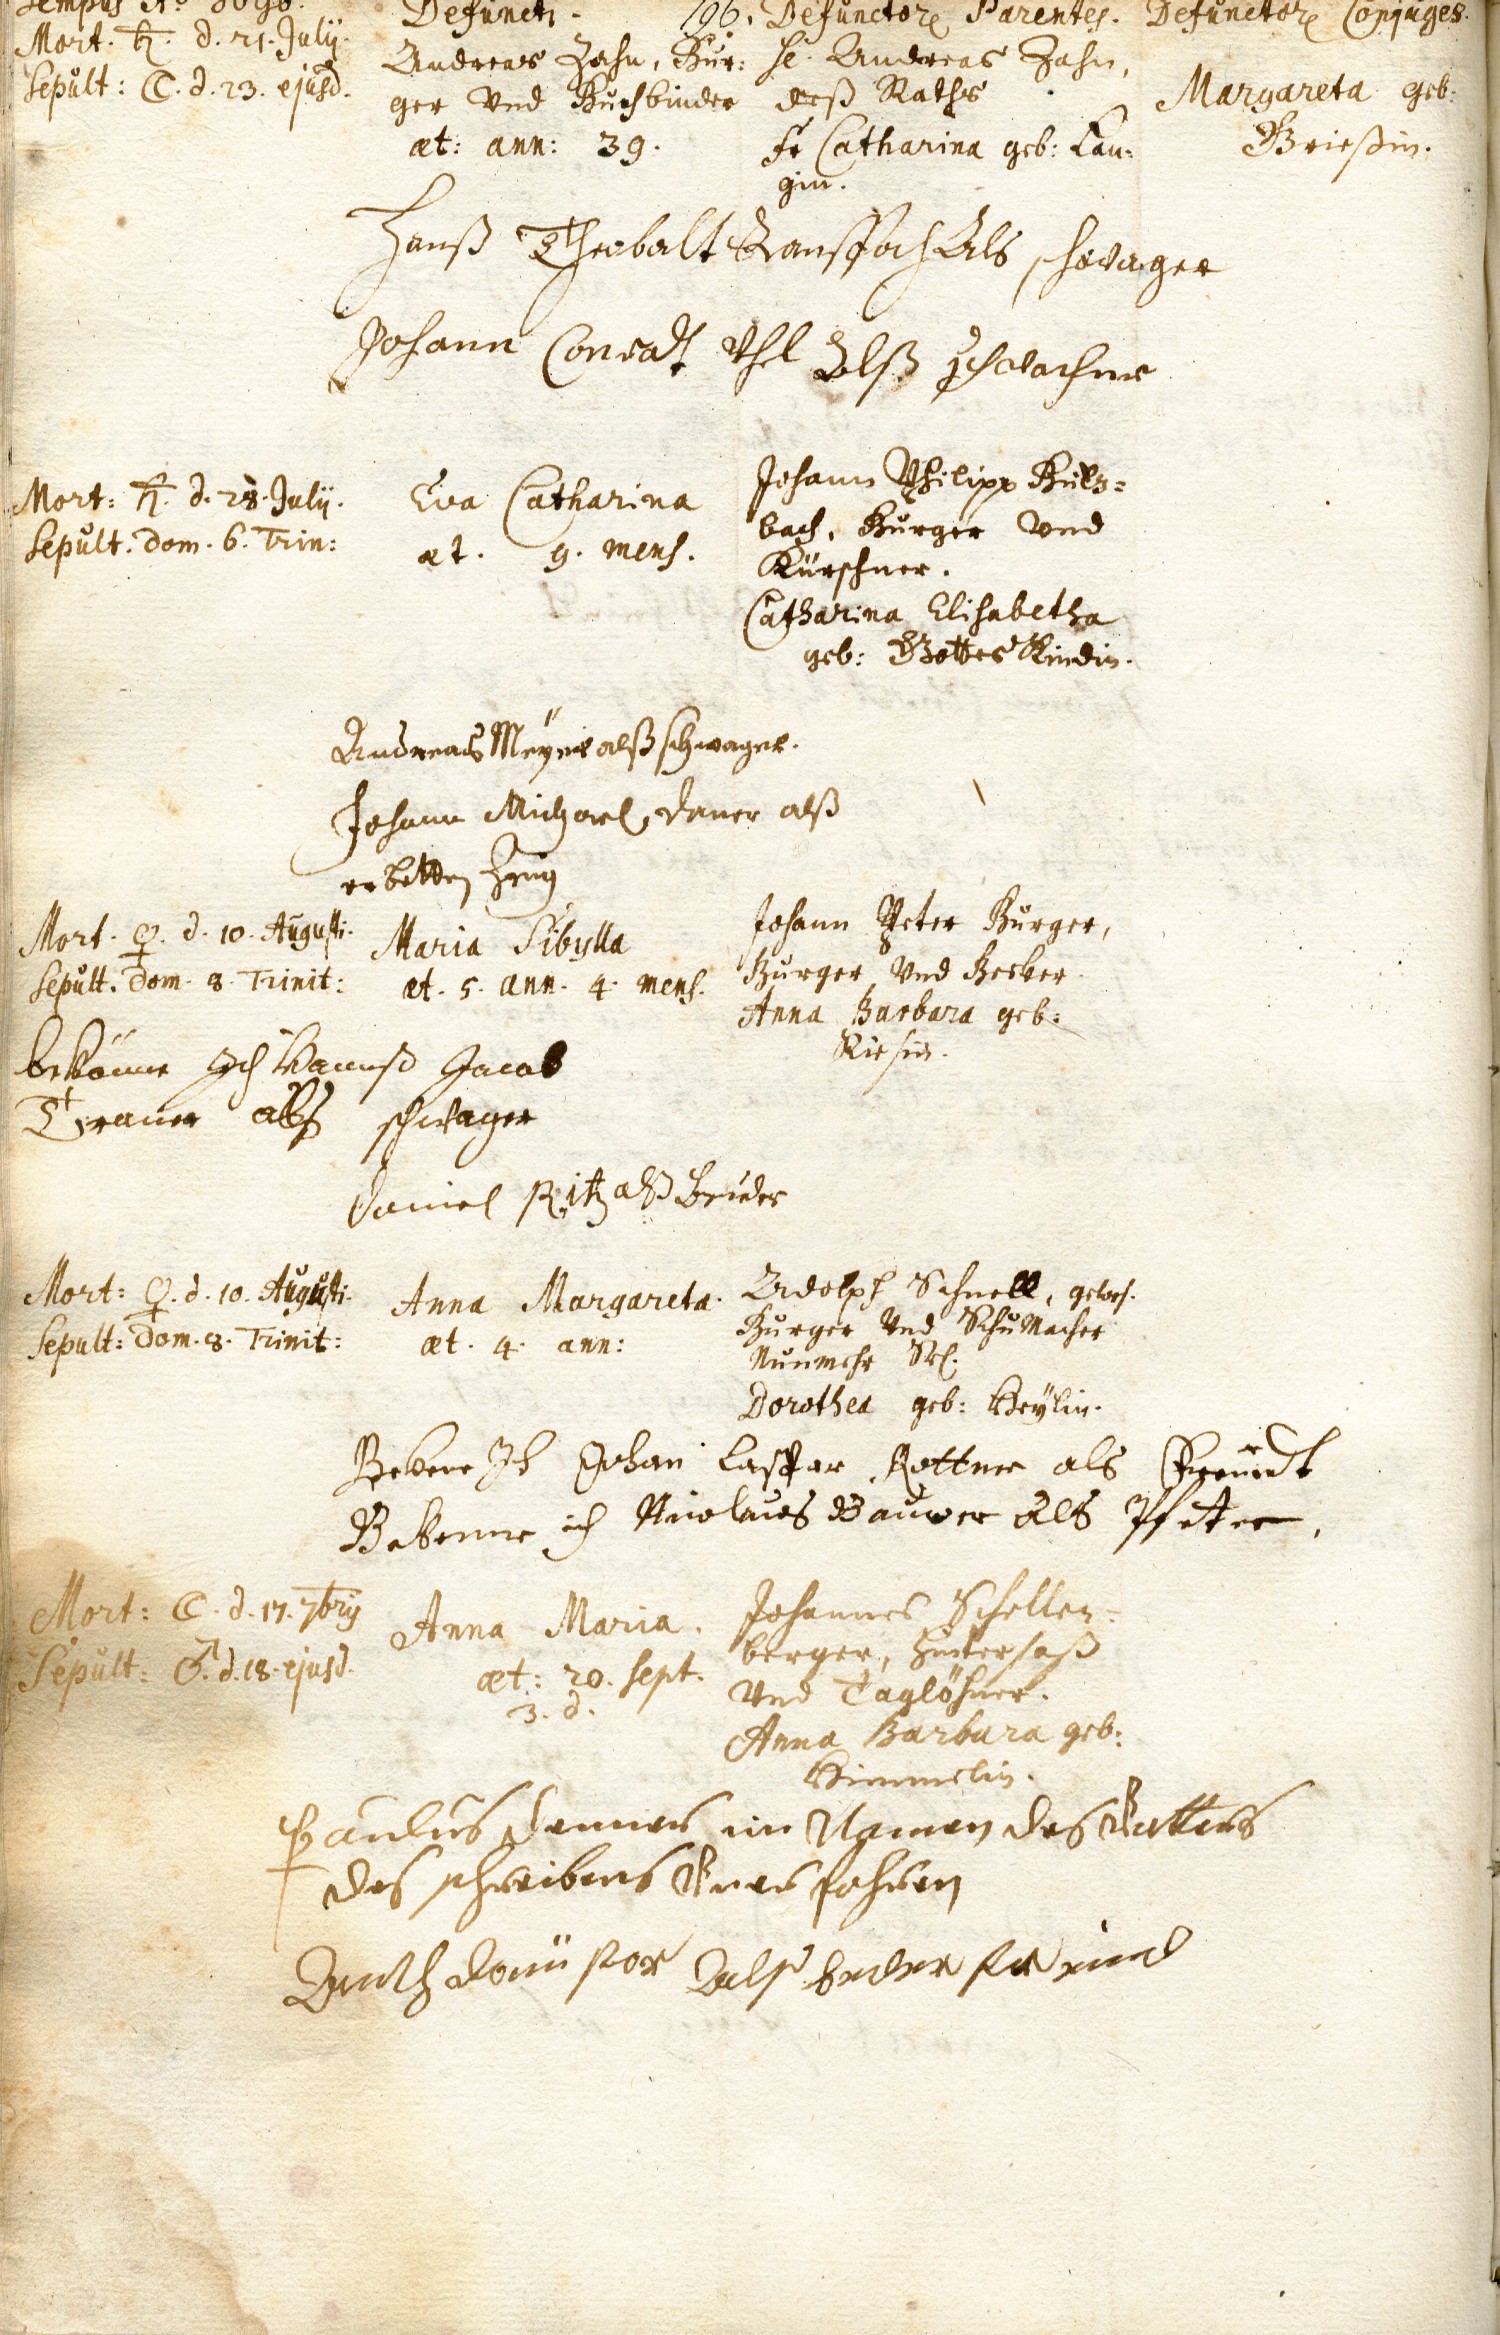 Tempus Aō
Defuncti. 196. Defunctorū Parentes. Defunctorū Conjuges.
Mort. ♄. d. 21. Julij.
Sepult: ☾. d. 23. ejusd.
Andreas Zahn, Bur:
ger und Buchbinder
æt: ann: 39.
H. Andreas Zahn,
deß Raths
Fr Catharina geb: Lau:
gin.
Margareta geb:
Grießin.
Hanß Theobalt als schwager
Johann Conradt Uhl alß
Mort: ♄. d. 28. Julij.
Sepult. Dom. 6. Trin:
Eva Catharina
æt. 9. mens.
Johann Philipp Kiltz=
bach, Burger und
Kürschner.
Catharina Elisabetha
geb: Gottes Kindin.
Andreas Meyer alß schwager.
Johann Michael Daner alß
erbetten Zeug
Mort. ♀. d. 10. Augusti.
Sepult. Dom. 8. Trinit:
Maria Sibylla
æt. 5. ann. 4. mens.
Johann Peter Burger,
Burger und Becker
Anna Barbara geb:
Rießin.
bekönne Ich Hannß Jacob
Traner alß schwager
Daniel Ritz alß Bruder
Mort: ♀. d. 10. Augusti.
Sepult: Dom. 8. Trinit:
Anna Margareta.
æt. 4. ann:
Adolph Schnell, gewes.
Burger und Schumacher
Nunmehr Sel.
Dorothea geb: Keylin.
Bekene Ich Johan Casper Rottner als Freundt
Bekenne ich Nicolaus Bauwer als Pfeter,
Mort: ☾. d. 17. 7bris
Sepult: ♂. d. 18. ejusd.
Anna Maria.
æt: 20. sept.
3. d.
Johannes Schellen=
berger, Hintersaß
und Taglöhner.
Anna Barbara geb:
Himmelin.
Paulus Denner im Namen des Vatters
des schreibens Unerfahren